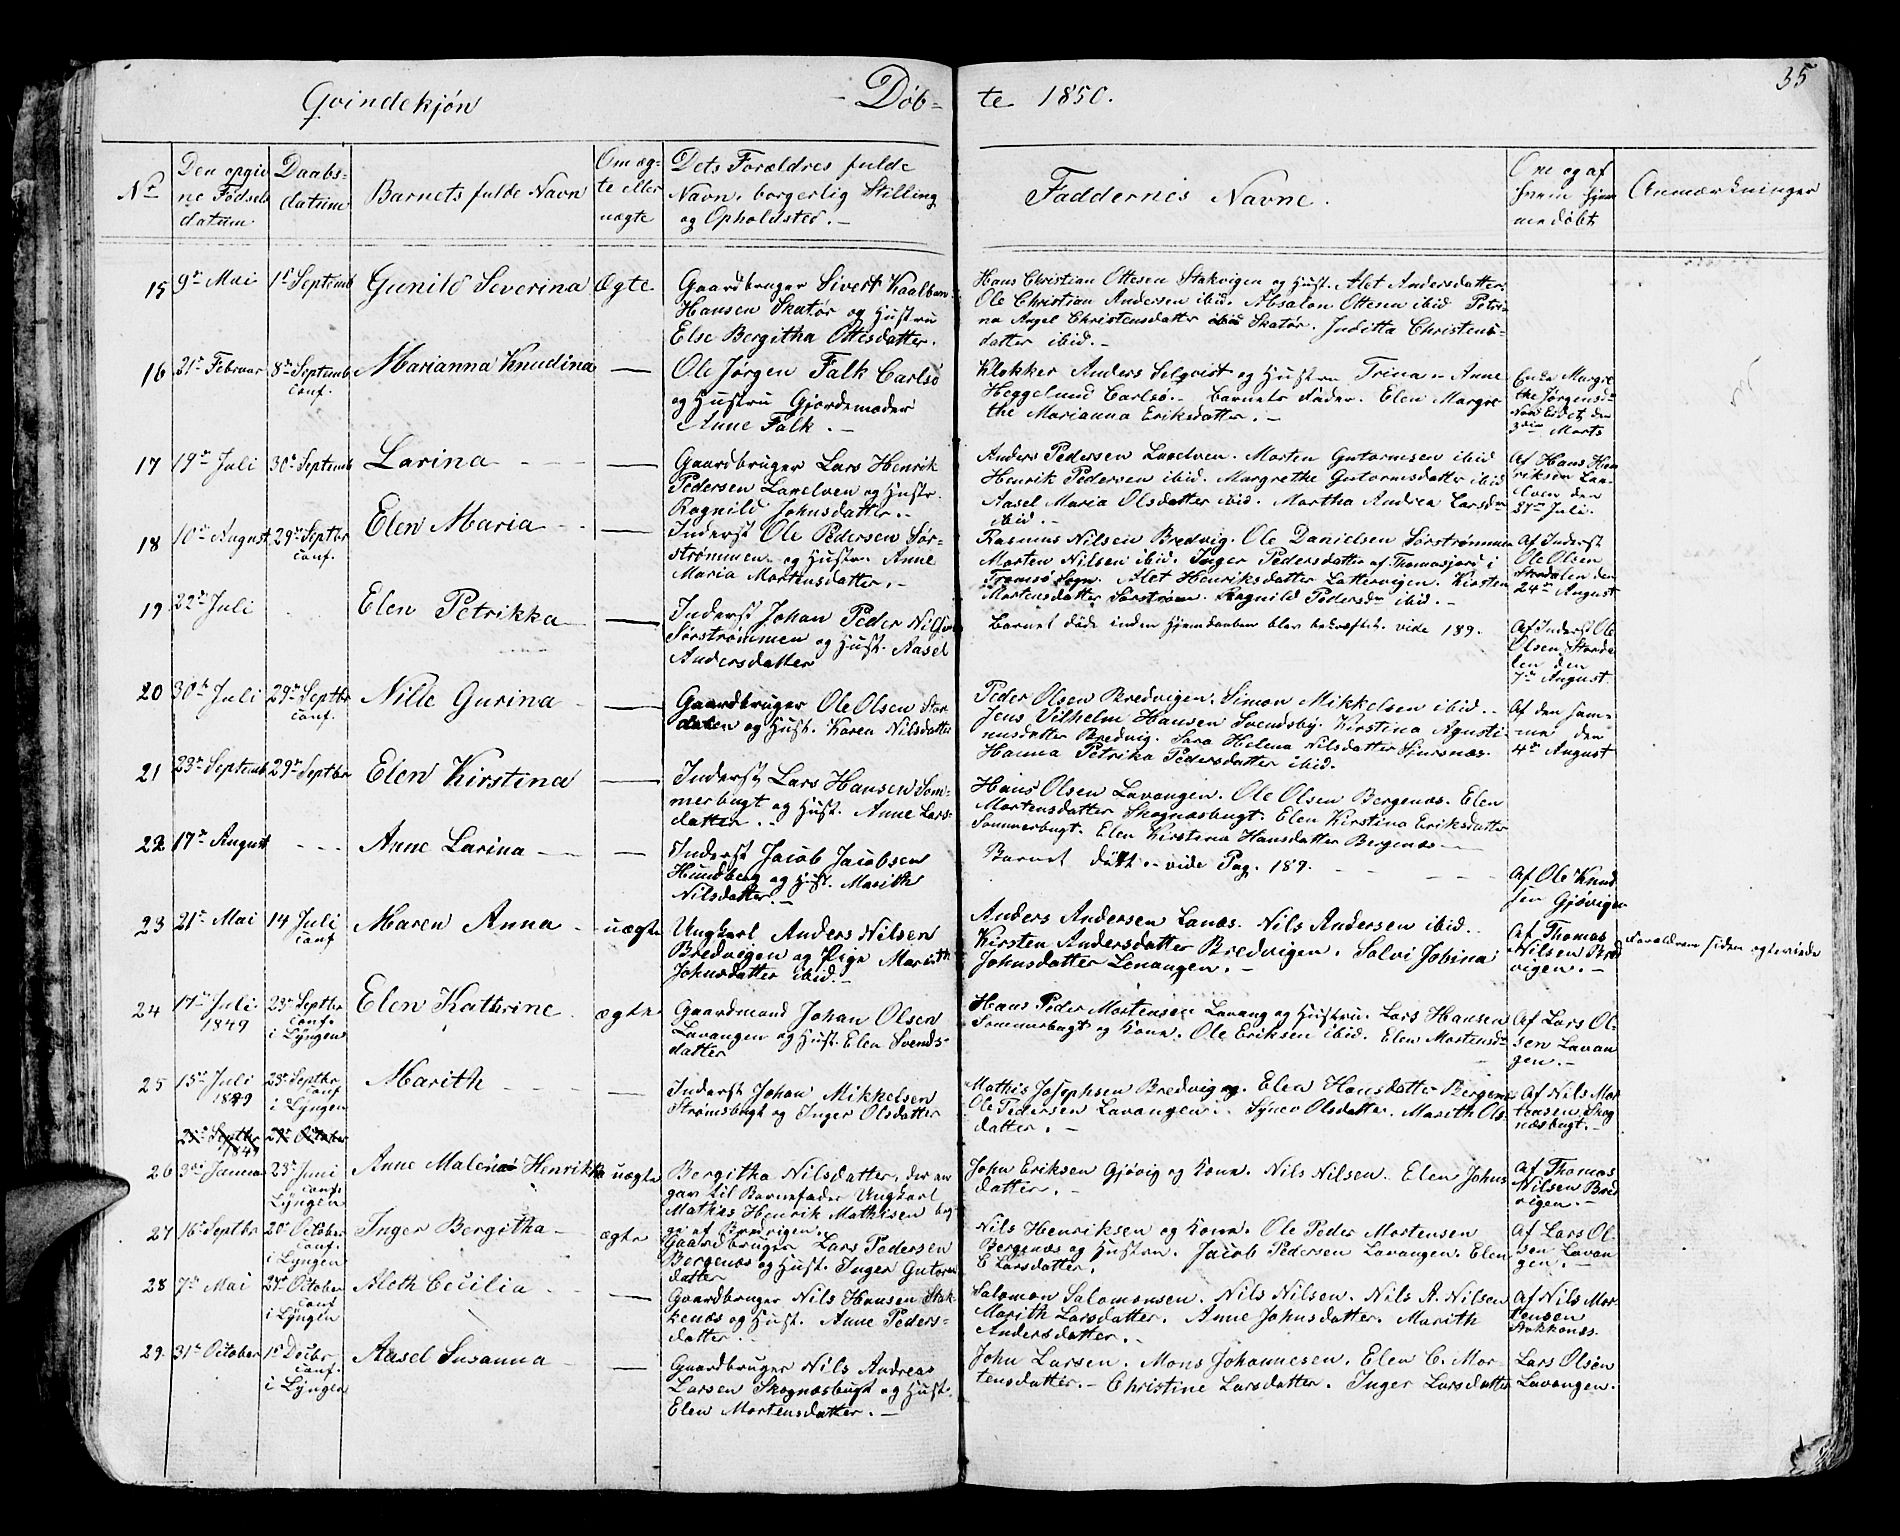 35
Qvindekjön
Döb-
te 1850.
Nr
Den opgiv
ne Födsels
datum
Daabs-
datum
Barnets fulde Navn
Om æg-
te eller
uægte
Dets Forældres fulde
Navn, borgerlig Stilling
og Opholdsted.
Faddernes Navne.
Om og af
hvem hjem
medöbt
Anmærkninger
15 9de Mai 1st Septemb Gunild Severina Ægte
Gaardbruger Sivert Kaalbein
Hansen Skatör og Hustru
Else Bergitha Ottesdatter.
Hans Christian Ottesen Stakvigen og Hust. Alet Andersdatter.
Ole Christian Andersen ibid. Absalon Ottesen ibid Petri-
na Angel Christensdatter Skatör. Juditta Christens-
datter ibid.
16 21de Februar 8de Septemb
conf.
Marianna Knudina —
Ole Jörgen Falk Carlsö
og Hustru Gjordemoder
Anne Falk.
Klokker Anders Selqvist og Hustru Trina – Anne
Heggelund Carlsö. Barnets Fader. Elen Margre
the Marianna Eriksdatter.
Enke Margre
the Jörgensd
Nord Eidet den
3die Marts
17 19de Juli 30te Septemb Larina —
Gaardbruger Lars Henrik
Pedersen Lanelven og Hustr.
Ragnild Johnsdatter.
Anders Pedersen Lanelven. Morten Gutormsen ibid
Henrik Pedersen ibid. Margrethe Gutormsdatter ibid
Aasel Maria Olsdatter ibid. Martha Andrea Larsdtr
ibid.
Af Hans Hen
riksen Lan-
elven den
27de Juli.
18 10de August 29de Septbr
conf.
Elen Maria —
Inderst Ole Pedersen Sör-
strömmen og Hustru Anne
Maria Mortensdatter.
Rasmus Nilsen Bredvig. Ole Danielsen Sörströmmen
Morten Nilsen ibid. Inger Pedersdatter af Thomasjord i
Tromsö Sogn. Alet Henriksdatter Lattervigen. Kirsten
Mortensdatter Sörström. Ragnild Pedersdtr ibid.
Af Inderst
Ole Olsen
Stordalen den
24de August
19 22de Juli
Elen Petrikka —
Inderst Johan Peder Nilsen
Sörströmmen og Hust. Aasel
Andersdatter
Barnet döde inden Hjemdaaben blev bekræftet. vide 189.
Af Inderst Ole
Olsen Storda-
len den
7de August
20 30te Juli 29de Septbr
conf.
Nille Gurina —
Gaardbruger Ole Olsen Stor
dalen og Hust. Karen Nilsdatter
Peder Olsen Bredvigen. Simon Mikkelsen ibid.
Jens Vilhelm Hansen Svendsby. Kirstina Agusti-
nusdatter Bredvig. Sara Helena Nilsdatter Sjursnæs.
Hanna Petrika Pedersdatter ibid.
Af den sam-
me den
4de August
21 23de Septemb 29de Septbr Elen Kirstina —
Inderst Lars Hansen Som-
merbugt og Hust. Anne Lars-
datter.
Hans Olsen Lavangen. Ole Olsen Bergenæs. Elen
Mortensdatter Skognæsbugt. Elen Kirstina Eriksdatter
Sommerbugt. Elen Kirstina Hansdatter Bergenæs
22 17de August
Anne Larina —
Inderst Jacob Jacobsen
Hundberg og Hust. Marith
Nilsdatter.
Barnet dödt – vide Pag. 189.
Af Ole Knud
sen Gjövigen
23 21de Mai 14 Juli
conf
Maren Anna uægte
Ungkarl Anders Nilsen
Bredvigen og Pige Marith
Johnsdatter ibid.
Anders Andersen Lanæs. Nils Andersen ibid.
Kirsten Andersdatter Bredvigen. Salvi Jobina
Johnsdatter Lenangen.
Af Thomas
Nilsen Bred
vigen.
Forældrene siden egteviede
24 17de Juli
1849
23de Septbr
conf.
i Lyngen
Elen Kathrine ægte
Gaardmand Johan Olsen
Lavangen og Hust. Elen Svends-
datter
Hans Peder Mortensen Lavang og Hustru. Lars Hansen
Sommerbugt og Kone. Ole Eriksen ibid. Elen Mortensdtr
Af Lars Ol-
sen Lavan
gen.
25 15de Juli
1849
23de Septbr
conf
i Lyngen
Marith —
Inderst Johan Mikkelsen
Strömsbugt og Inger Olsdatter
Mathis Josephsen Bredvig og. Elen Hansdatter Bergenæs
Ole Pedersen Lavangen. Synev Olsdatter. Marith Ols-
datter.
Af Nils Mor
tensen Skog
næsbugt.
Septbr
1849
October
26 3die Januar 23de Juni
conf.
Lyngen
Anne Malena Henrikka uægte
Bergitha Nilsdatter, der an
gav til Barnefader Ungkarl
Mathis Henrik Mathisen beg-
ge af Bredvigen.
John Eriksen Gjövig og Kone. Nils Nilsen. Elen Johns
datter.
Af Thomas
Nilsen Bred
vigen.
27 16de Septbr 20de October
conf.
i Lyngen
Inger Bergitha ægte
Gaardbruger Lars Pedersen
Bergenæs og Hust. Inger Gutorms
datter
Nils Henriksen og Kone. Ole Peder Mortensen
Bergenæs og Hustru. Jacob Pedersen Lavangen. Elen
C Larsdatter.
Af Lars Ol-
sen Lavan
gen.
28 7de Mai 27de October
conf
i Lyngen
Aleth Cecilia —
Gaardbruger Nils Hansen Stak-
kenæs og Hust. Anne Peders-
datter.
Salomon Salomonsen. Nils Nilsen. Nils A. Nilsen
Marith Larsdatter. Anne Johnsdatter. Marith
Andersdatter.
Af Nils Mor-
tensen
Stakkenæs.
29. 31te October 1st Decbr
conf.
i Lyngen
Aasel Susanna —
Gaardbruger Nils Andreas
Larsen Skognæsbugt og Hust.
Elen Mortensdatter.
John Larsen. Mons Johannesen. Elen C. Mor-
tensdatter. – Christine Larsdatter. Inger Larsdatter
Lars Olsen
Lavangen.